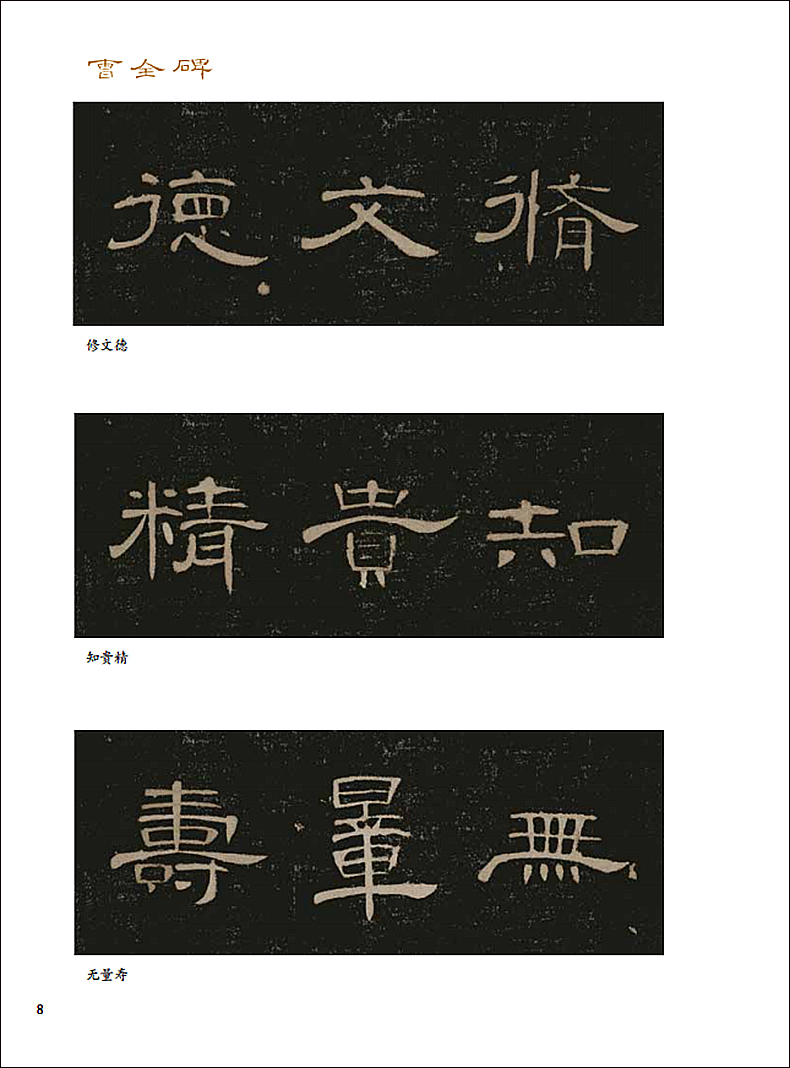 曹全碑
脩文德
修文德
知貴精
知贵精
無量壽
无量寿
8